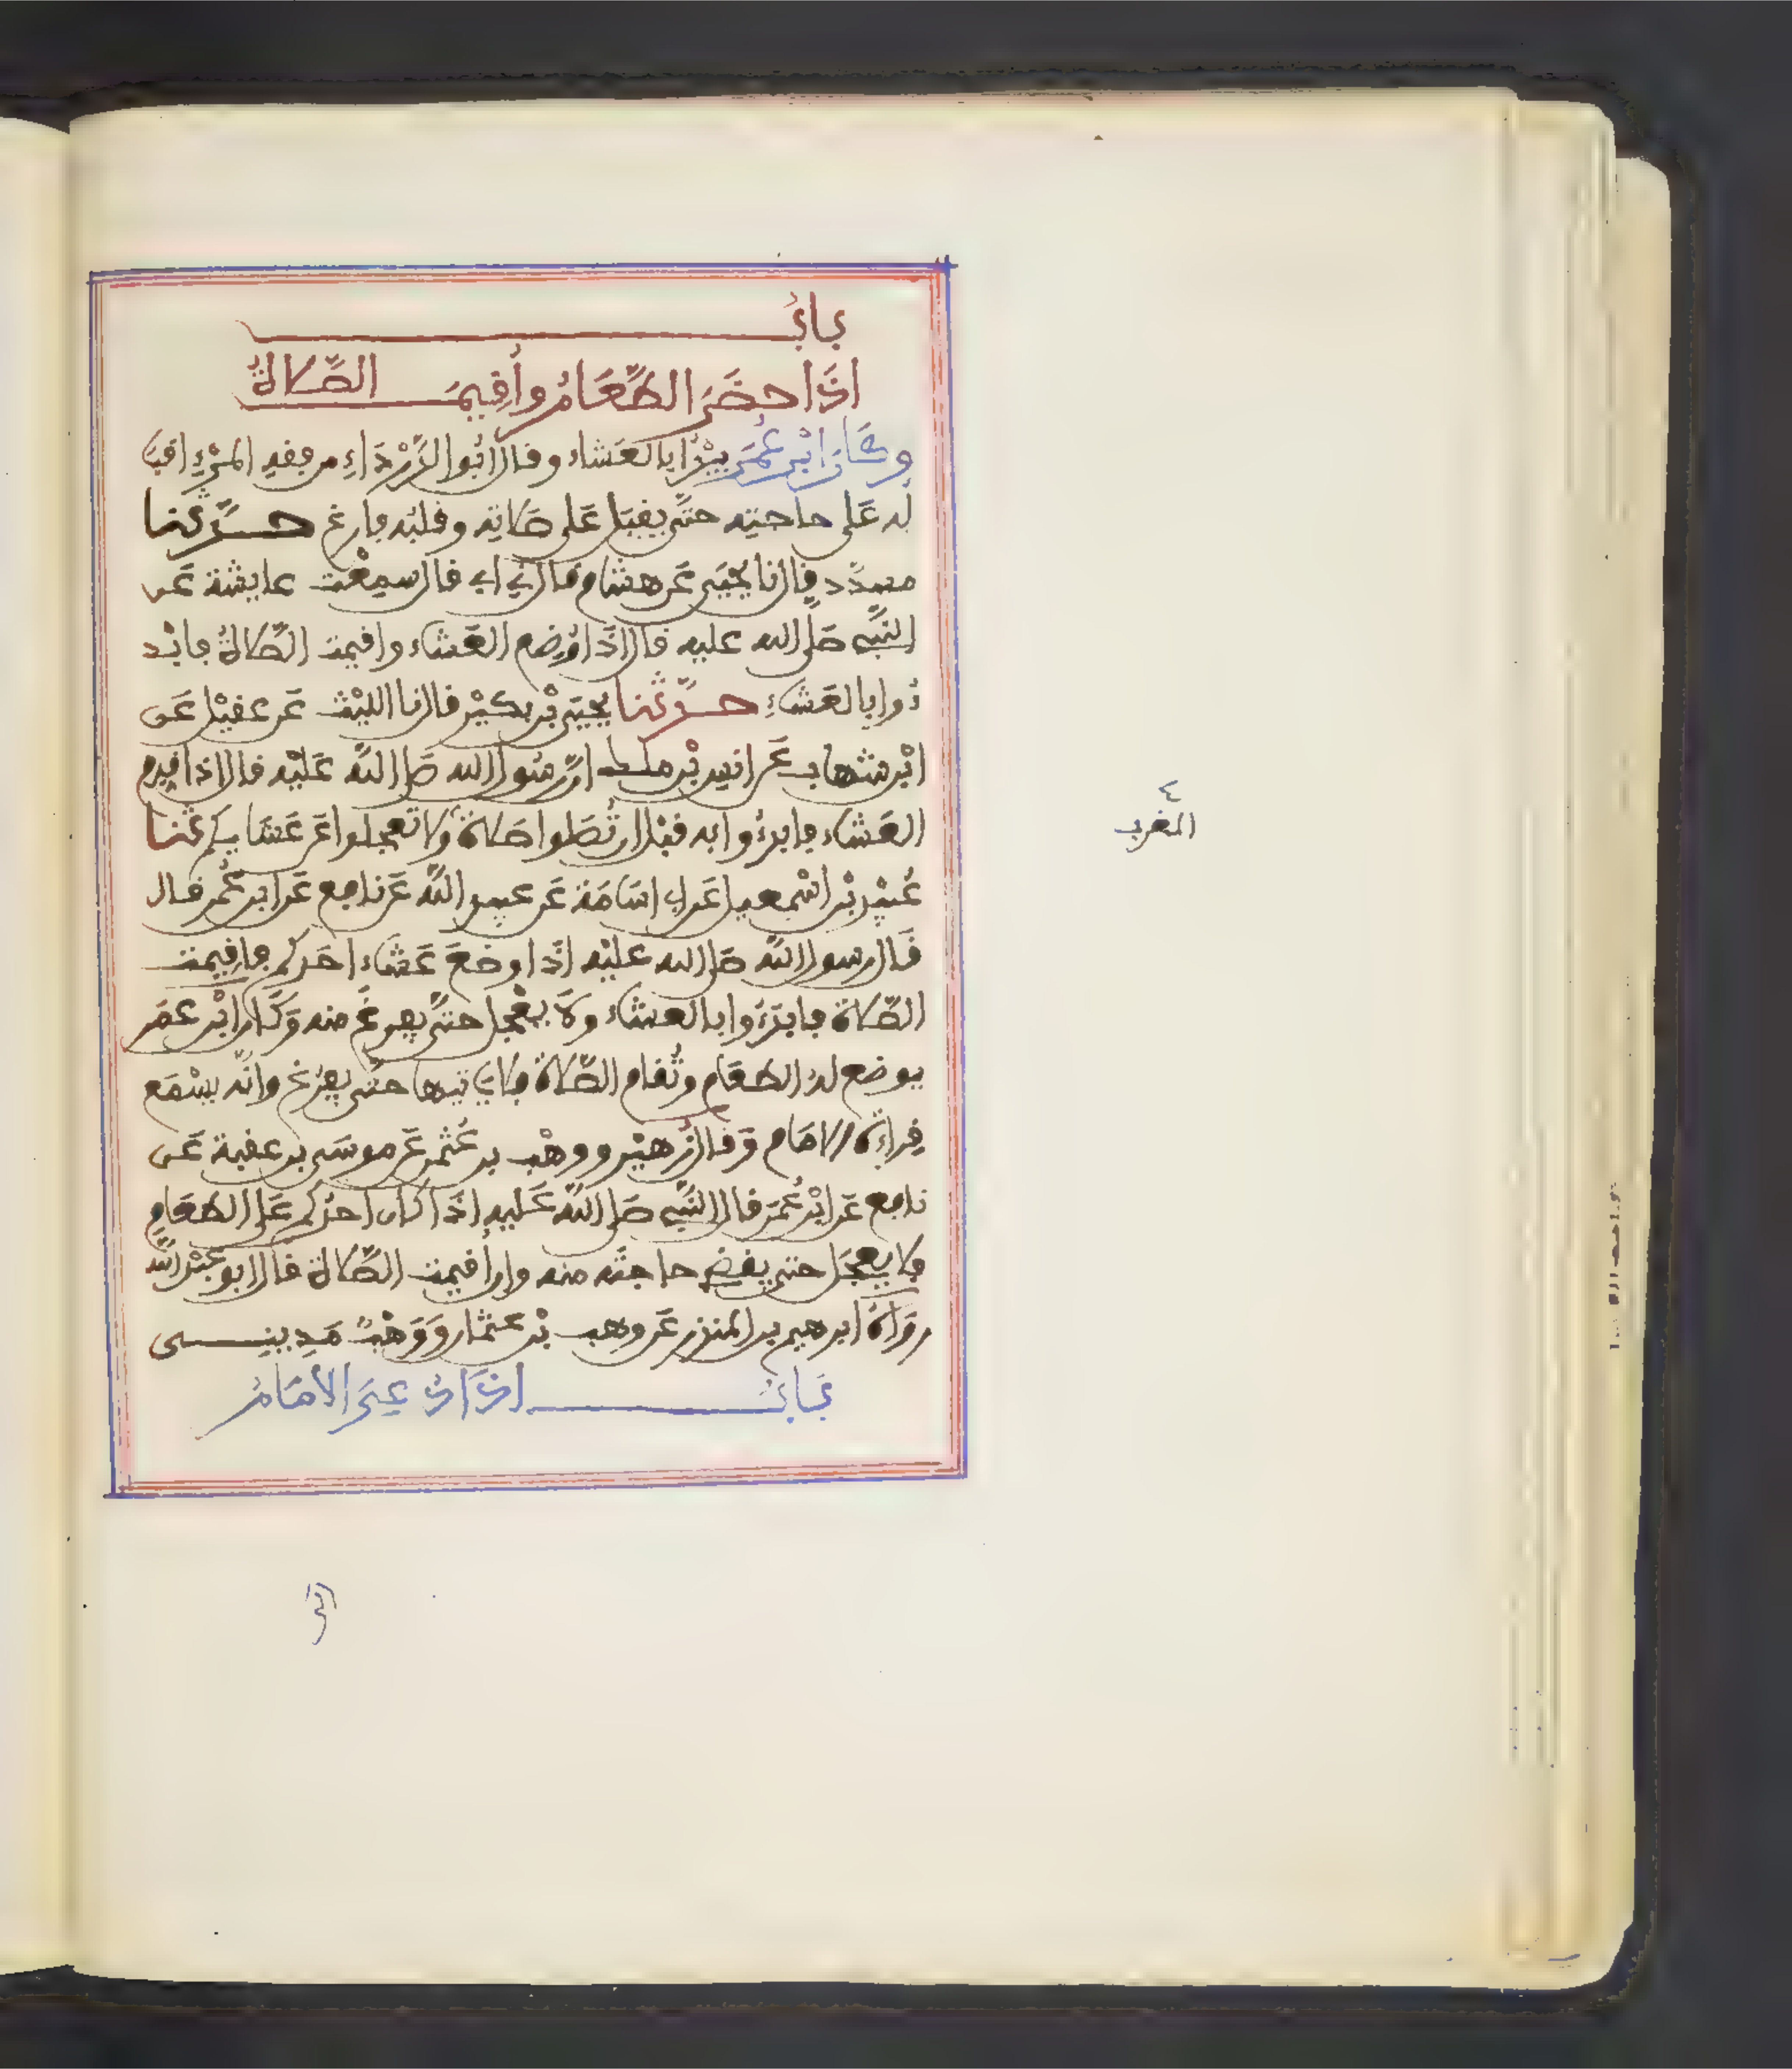 باب
اذا حضر الطعام وأقيمت الصلاة
وكان ابن عمر يبدأ بالعشاء وقال أبو الدرداء من فقه المرء اقبا
له على حاجته حتى يقبل على صلاته وقلبه فارغ حدثنا
مسدد قال نا يحيى عن هشام قال ني ابي قال سمعت عايشة عن
النبي صلى الله عليه قال اذا وضع العشاء واقيمت الصلاة فابد
ءوا بالعشاء حدثنا يحيى بن بكير قال نا الليث عن عقيل عن
ابن شهاب عن انس بن ملك ان رسول الله صلى الله عليه قال اذا قدم
العشاء فابدءوا به قبل ان تصلوا صلاة ولا تعجلوا عن عشايكم ثنا
عبيد بن اسمعيل عن ابي اسامة عن عبيد الله عن نافع عن ابن عمر قال
قال رسول الله صلى الله عليه اذا وضع عشاء احدكم فاقيمت
الصلاة فابدءوا بالعشاء ولا يعجل حتى يفرغ منه وكان ابن عمر
يوضع له الطعام وتقام الصلاة فلا ياتيها حتى يفرغ وانه يسمع
قراءة الامام وقال زهير ووهب بن عثمن عن موسى بن عقبة عن
نافع عن ابن عمر قال النبي صلى الله عليه اذا كان احدكم على الطعام
فلا يعجل حتى يقضي حاجته منه وان أقيمت الصلاة قال ابو عبد الله
رواه ابرهيم بن المنذر عن وهب بن عثمان ووهب مديني
باب اذا دعي الامام
٤
المغرب
الى